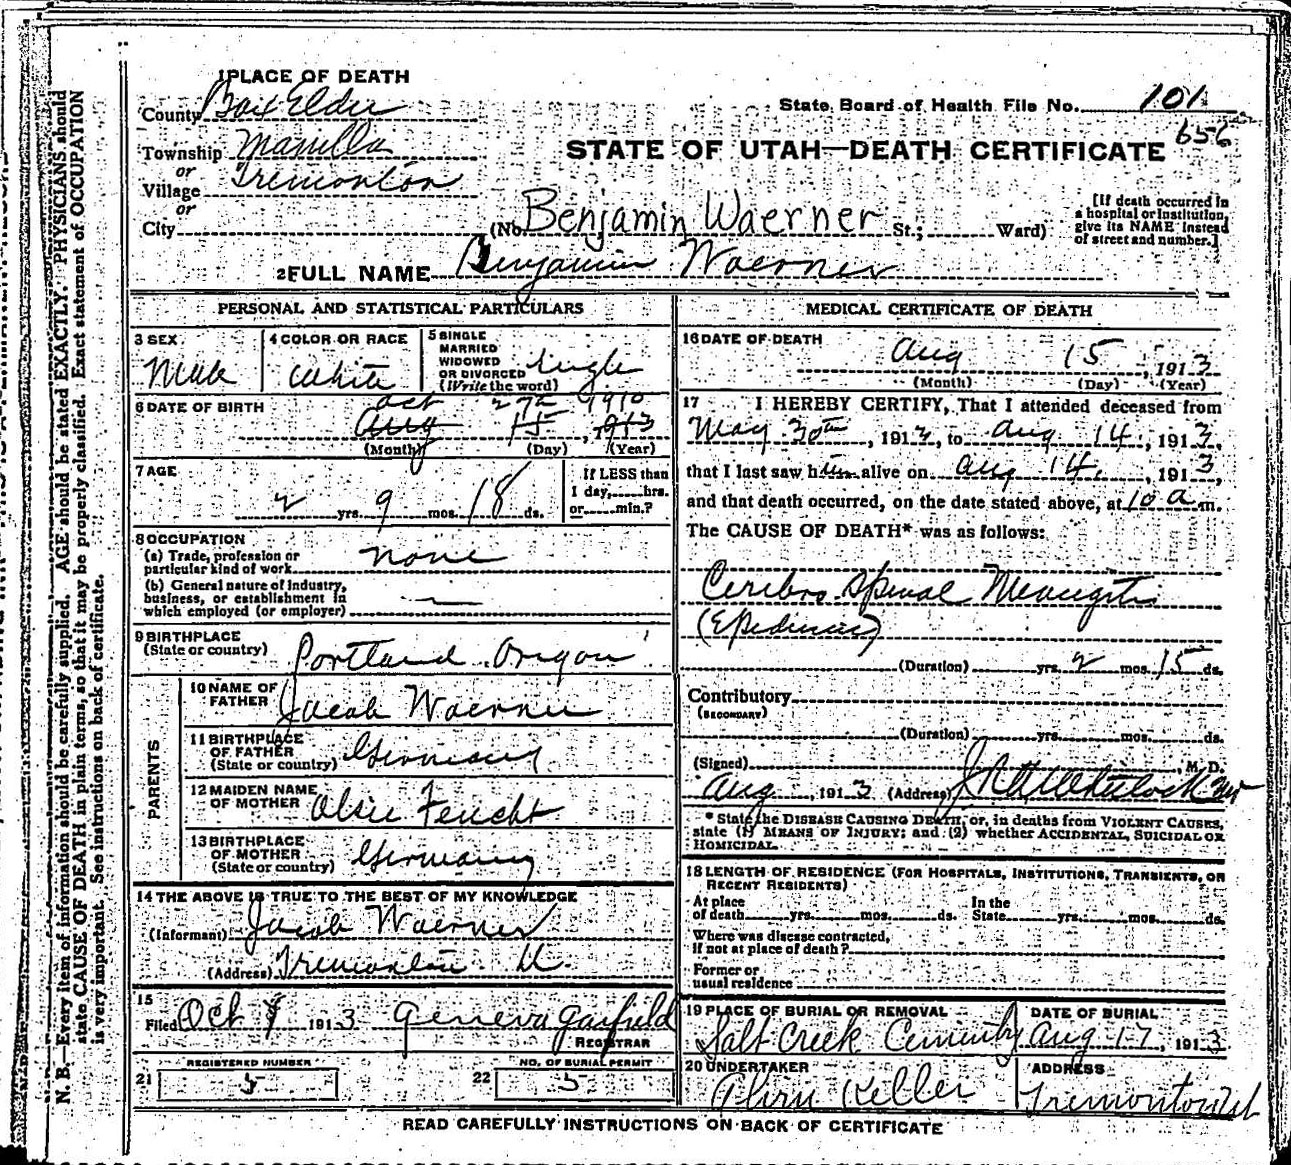 1 PLACE OF DEATH
County Box Elder
State Board of Health File No. 101
656
Township Manilla
or
Village Tremonton
or
City
STATE OF UTAH—DEATH CERTIFICATE
(No. Benjamin Waerner St.; Ward)
[If death occurred in a hospital or institution, give its NAME instead of street and number.]
2 FULL NAME Benjamin Waerner
PERSONAL AND STATISTICAL PARTICULARS
3 SEX
Male
4 COLOR OR RACE
White
5 SINGLE
MARRIED
WIDOWED
OR DIVORCED
(Write the word)
single
6 DATE OF BIRTH
Oct 27th 1910
Aug 15, 1913
(Month) (Day) (Year)
7 AGE
2 yrs. 9 mos. 18 ds.
If LESS than
1 day, hrs.
or min.?
8 OCCUPATION
(a) Trade, profession or
particular kind of work none
(b) General nature of industry,
business, or establishment in
which employed (or employer)
9 BIRTHPLACE
(State or country)
Portland Oregon
PARENTS
10 NAME OF
FATHER
Jacob Waerner
11 BIRTHPLACE
OF FATHER
(State or country) Germany
12 MAIDEN NAME
OF MOTHER Feucht
13 BIRTHPLACE
OF MOTHER
(State or country) Germany
14 THE ABOVE IS TRUE TO THE BEST OF MY KNOWLEDGE
(Informant) Jacob Waerner
(Address) Tremonton U.
15
Filed Oct 1913 Geneva Garfield
REGISTRAR
REGISTERED NUMBER
21 5
NO. OF BURIAL PERMIT
22 5
MEDICAL CERTIFICATE OF DEATH
16 DATE OF DEATH
Aug 15, 1913
(Month) (Day) (Year)
17 I HEREBY CERTIFY, That I attended deceased from
May 30th, 1913, to Aug 14, 1913,
that I last saw him alive on Aug 14, 1913,
and that death occurred, on the date stated above, at 10 a m.
The CAUSE OF DEATH* was as follows:
Cerebro Spinal Meningitis
(Epidemic)
(Duration) yrs. 2 mos. 15 ds.
Contributory
(SECONDARY)
(Duration) yrs. mos. ds.
(Signed) , M. D.
Aug , 1913 (Address)
* State the DISEASE CAUSING DEATH, or, in deaths from VIOLENT CAUSES,
state (1) MEANS OF INJURY; and (2) whether ACCIDENTAL, SUICIDAL OR
HOMICIDAL.
18 LENGTH OF RESIDENCE (FOR HOSPITALS, INSTITUTIONS, TRANSIENTS, OR
RECENT RESIDENTS)
At place
of death yrs. mos. ds.
In the
State yrs. mos. ds.
Where was disease contracted,
if not at place of death?
Former or
usual residence
19 PLACE OF BURIAL OR REMOVAL
Salt Creek Cemintry
DATE OF BURIAL
Aug 17, 1913
20 UNDERTAKER
Keller
ADDRESS
Tremonton Ut
READ CAREFULLY INSTRUCTIONS ON BACK OF CERTIFICATE
N. B.—Every item of information should be carefully supplied. AGE should be stated EXACTLY. PHYSICIANS should
state CAUSE OF DEATH in plain terms, so that it may be properly classified. Exact statement of OCCUPATION
is very important. See instructions on back of certificate.